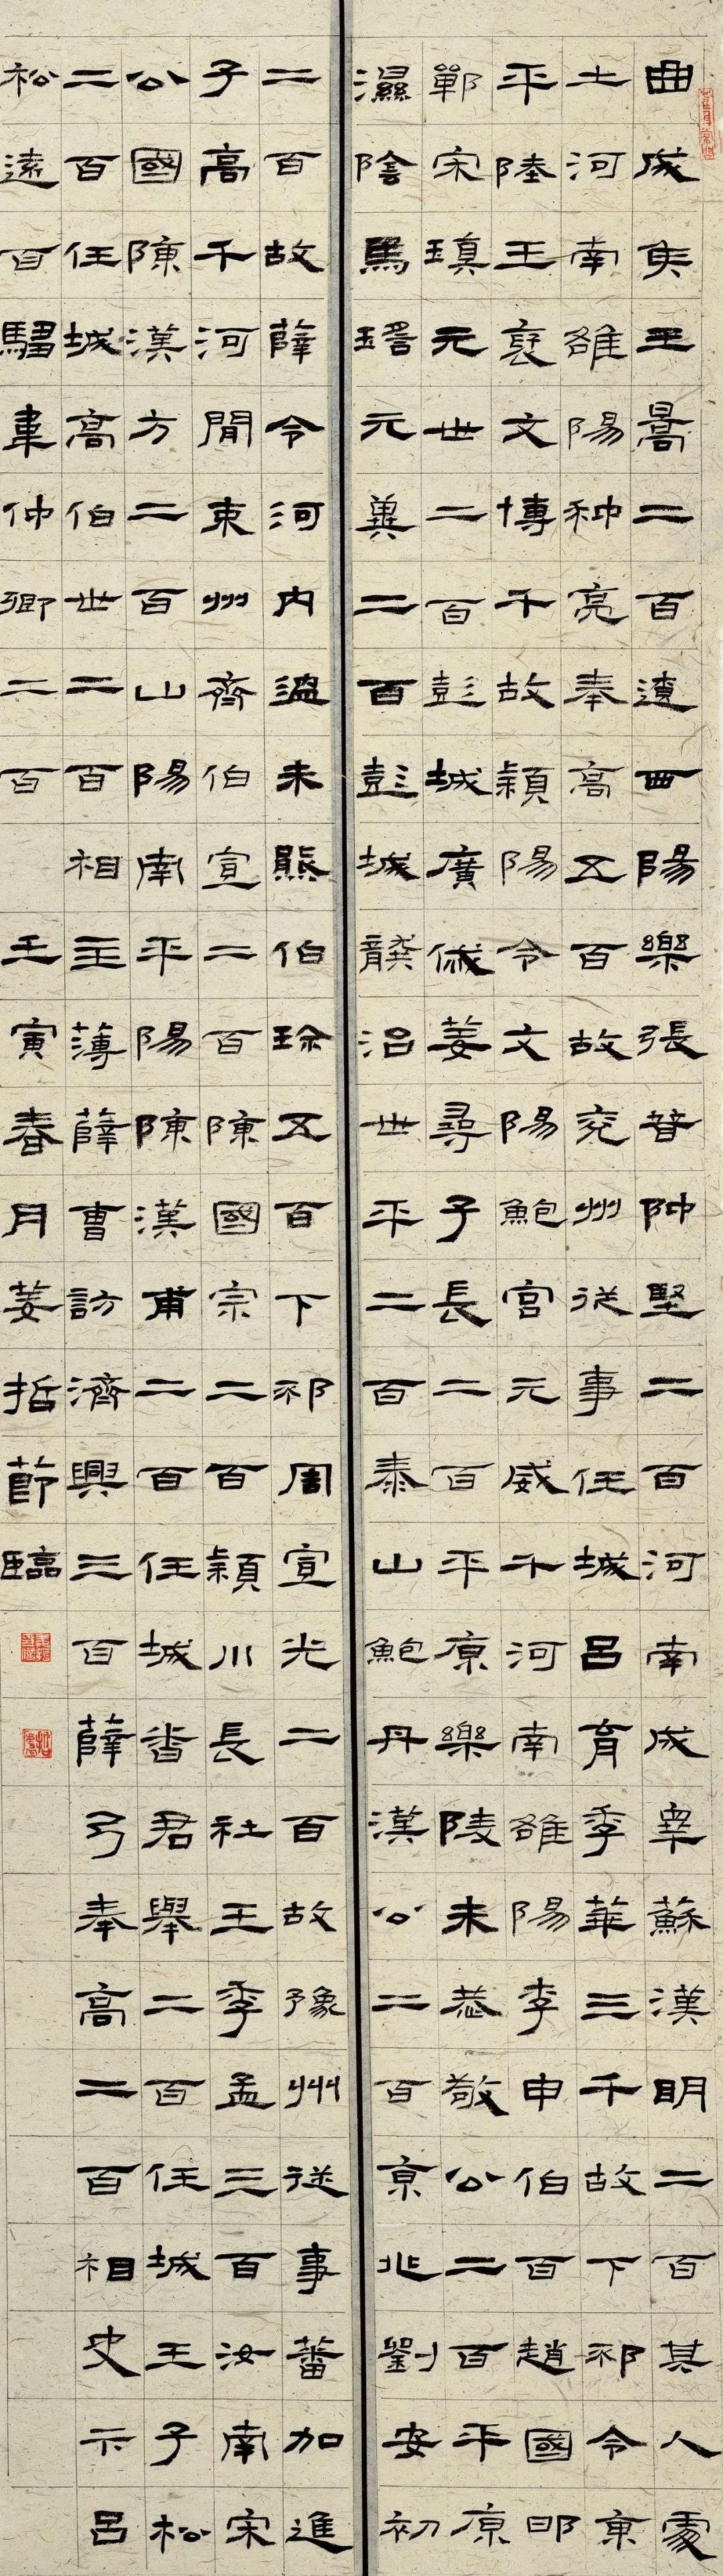 曲成侯王暠二百遼西陽樂張普仲堅二百河南成皋蘇漢明二百其人處
士河南雒陽种亮奉高五百故兗州從事任城呂育季華三千故下邳令東
平陸王褒文博千故潁陽令文陽鮑宮元威千河南雒陽李申伯百趙國邯
鄲宋瑱元世二百彭城廣戚姜尋子長二百平原樂陵朱恭敬公二百平原
濕陰馬瑤元冀二百彭城龔治世平二百泰山鮑丹漢公二百京兆劉安初
二百故薛令河內溫朱熊伯珍五百下邳周宣光二百故豫州從事蕃加進
子高千河間束州齊伯宣二百陳國宗二百潁川長社王季孟三百汝南宋
公國陳漢方二百山陽南平陽陳漢甫二百任城番君舉二百任城王子松
二百任城高伯世二百相主薄薛曹訪濟興三百薛弓奉高二百相史卞呂
松遠百騶韋仲卿二百 壬寅春月姜哲節臨